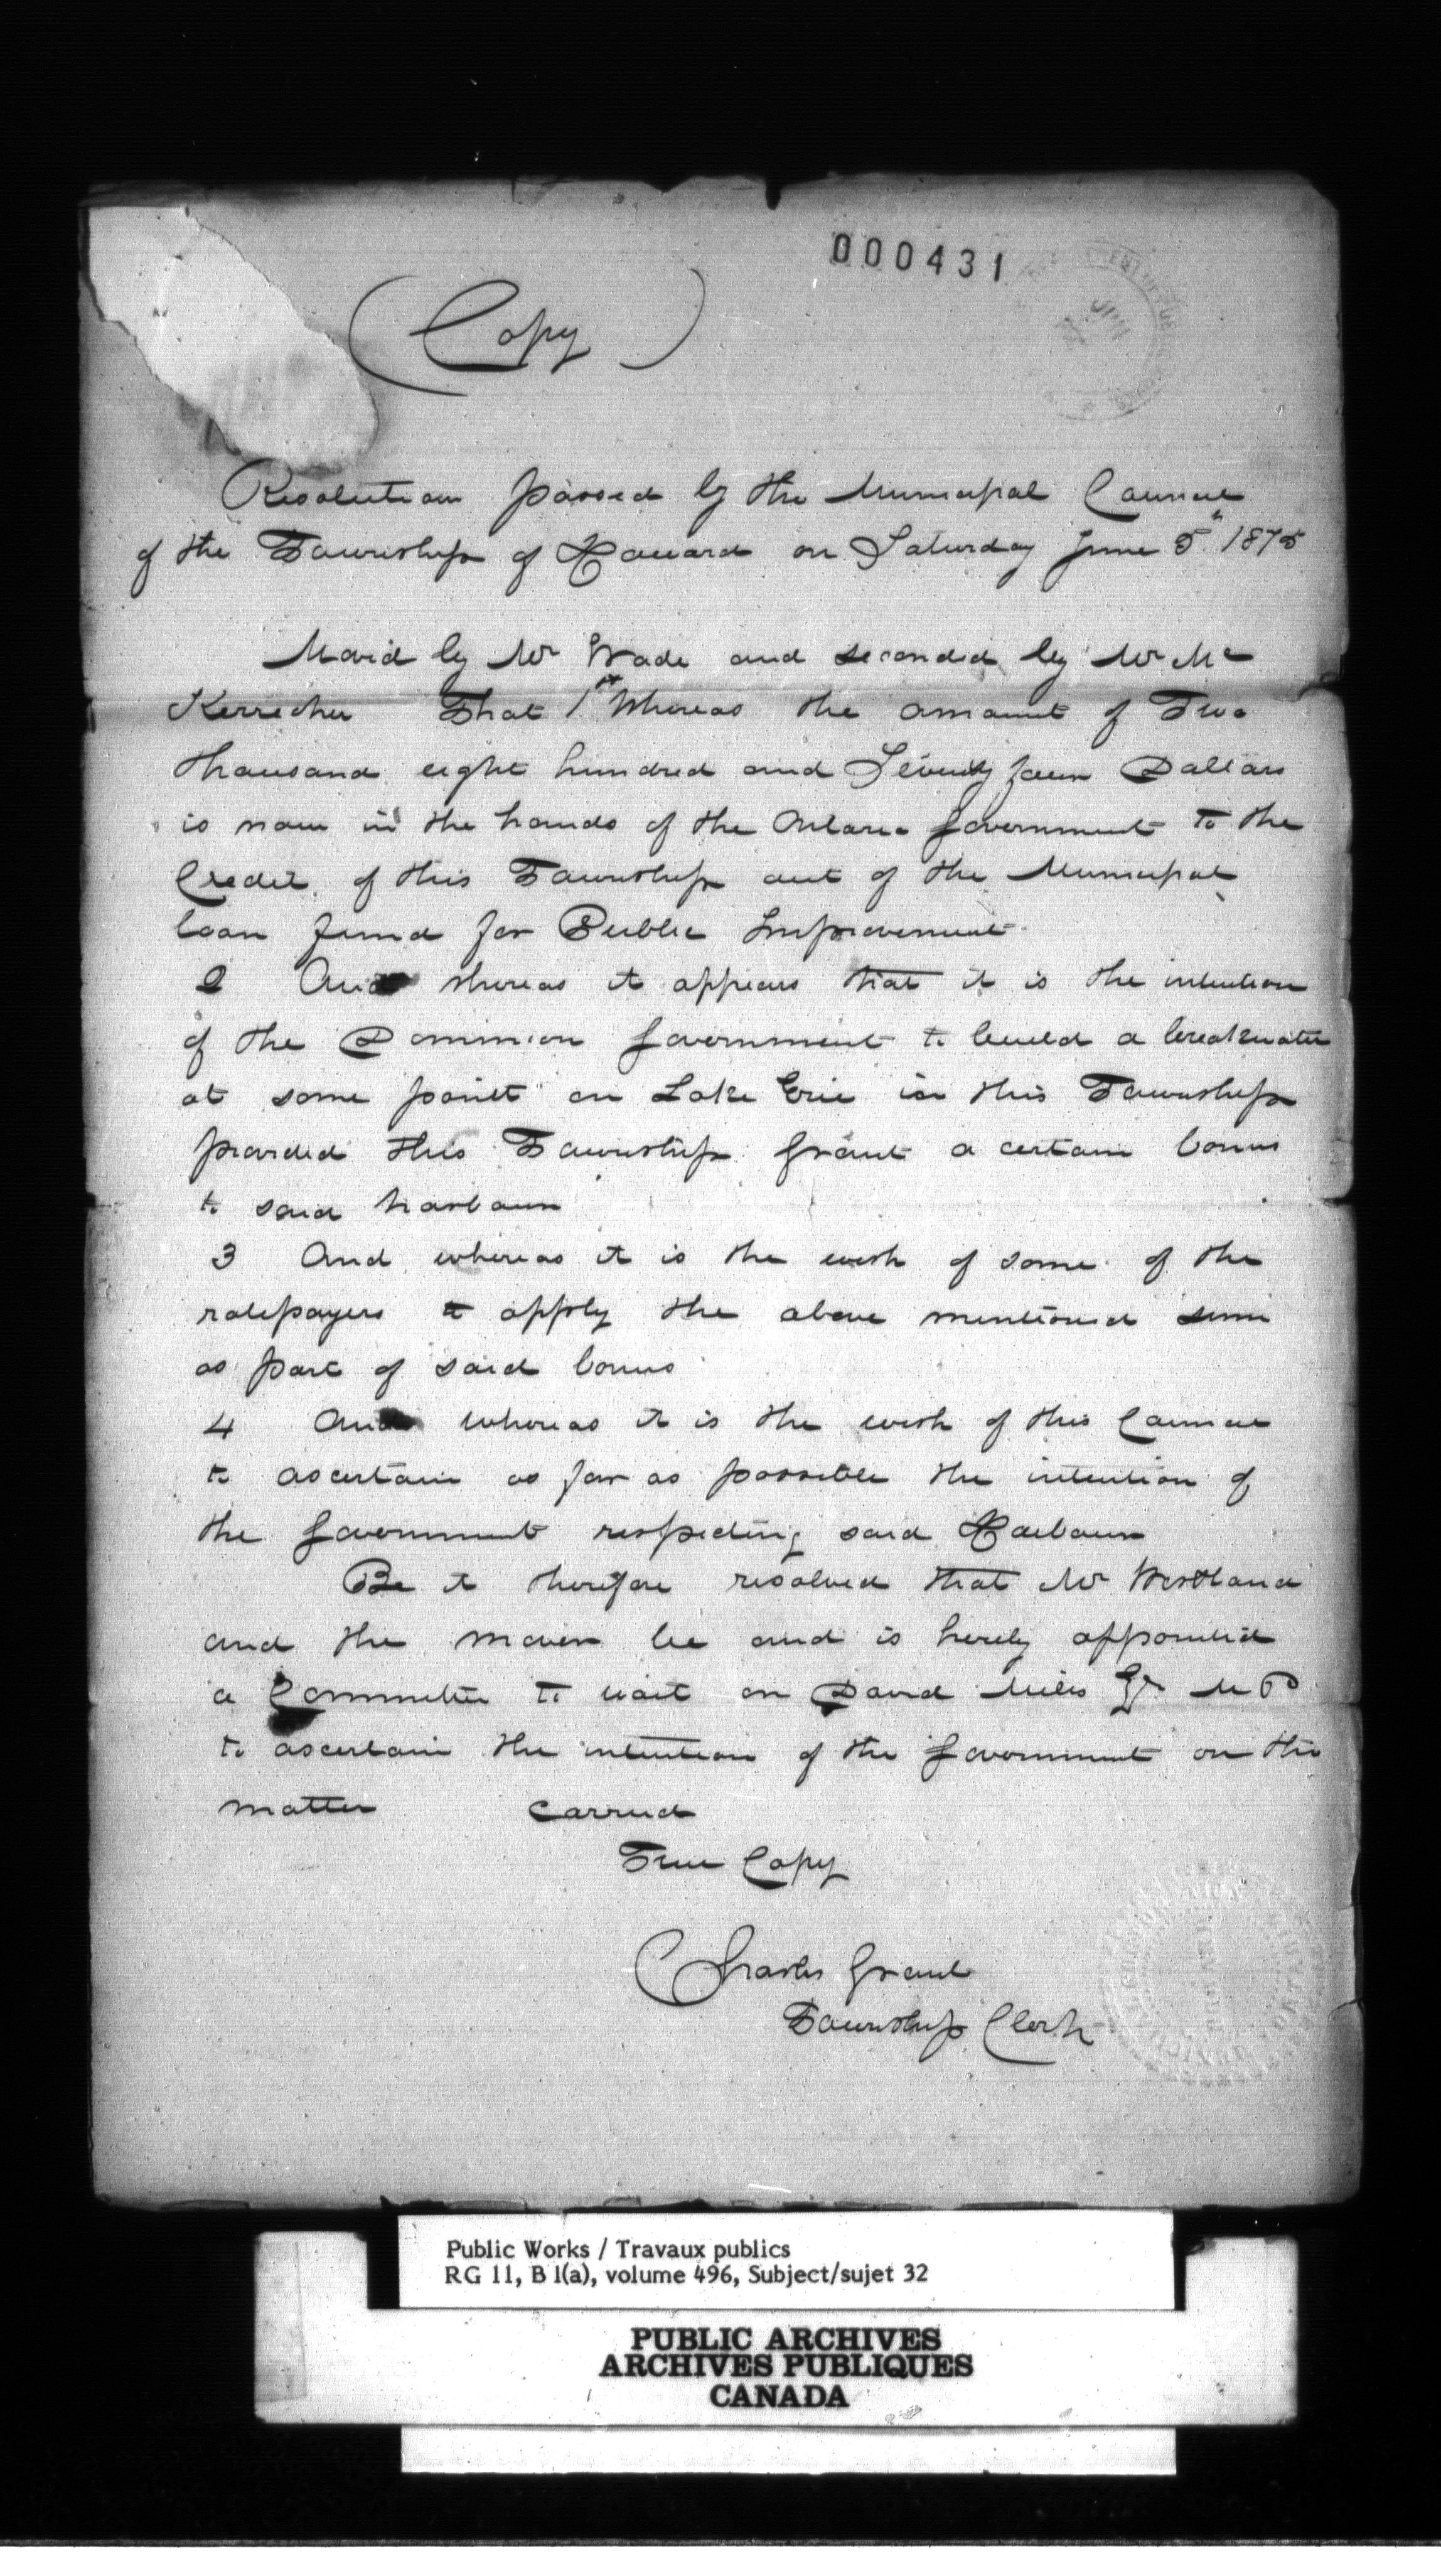 000431
(Copy)
Resolution passed by the Municipal Council
of the Township of Howard on Saturday June 5th 1875
Moved by Mr Wade and seconded by Mr Mc
Kerracher That 1st Whereas the amount of Two
thousand eight hundred and Seventy four Dollars
is now in the hands of the Ontario Government to the
Credit of this Township out of the Municipal
loan fund for Public Improvement
2 And whereas it appears that it is the intention
of the Dominion Government to build a breakwater
at some point on Lake Erie in this Township
provided this Township grant a certain bonus
to said harbour
3 And whereas it is the wish of some of the
ratepayers to apply the above mentioned sum
as part of said bonus
4 And whereas it is the wish of this Council
to ascertain as far as possible the intention of
the Government respecting said Harbour
Be it therefore resolved that Mr Westland
and the mover be and is hereby appointed
a Committee to wait on David Mills Esqr M P
to ascertain the intention of the Government on this
matter carried
True Copy
Charles Grant
Township Clerk
Public Works / Travaux publics
RG 11, B 1(a), volume 496, Subject/sujet 32
PUBLIC ARCHIVES
ARCHIVES PUBLIQUES
CANADA